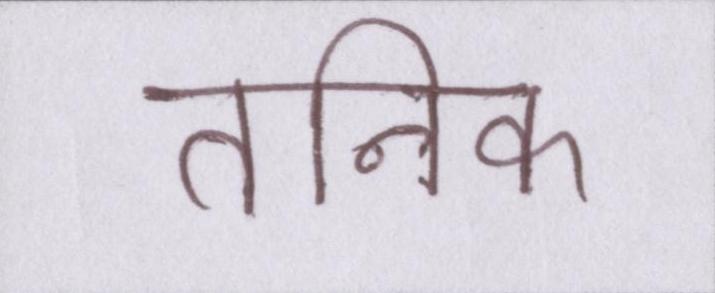 तनिक